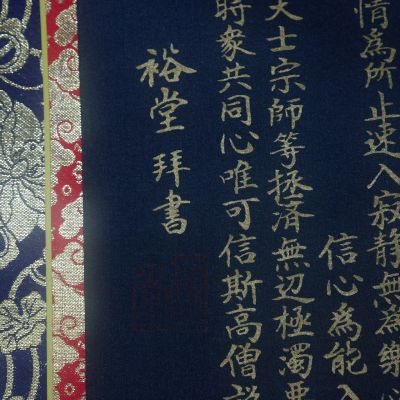 情為所止速入寂静無為樂必
信心為能入
大士宗師等拯済無辺極濁悪
時衆共同心唯可信斯高僧説
裕堂 拜書